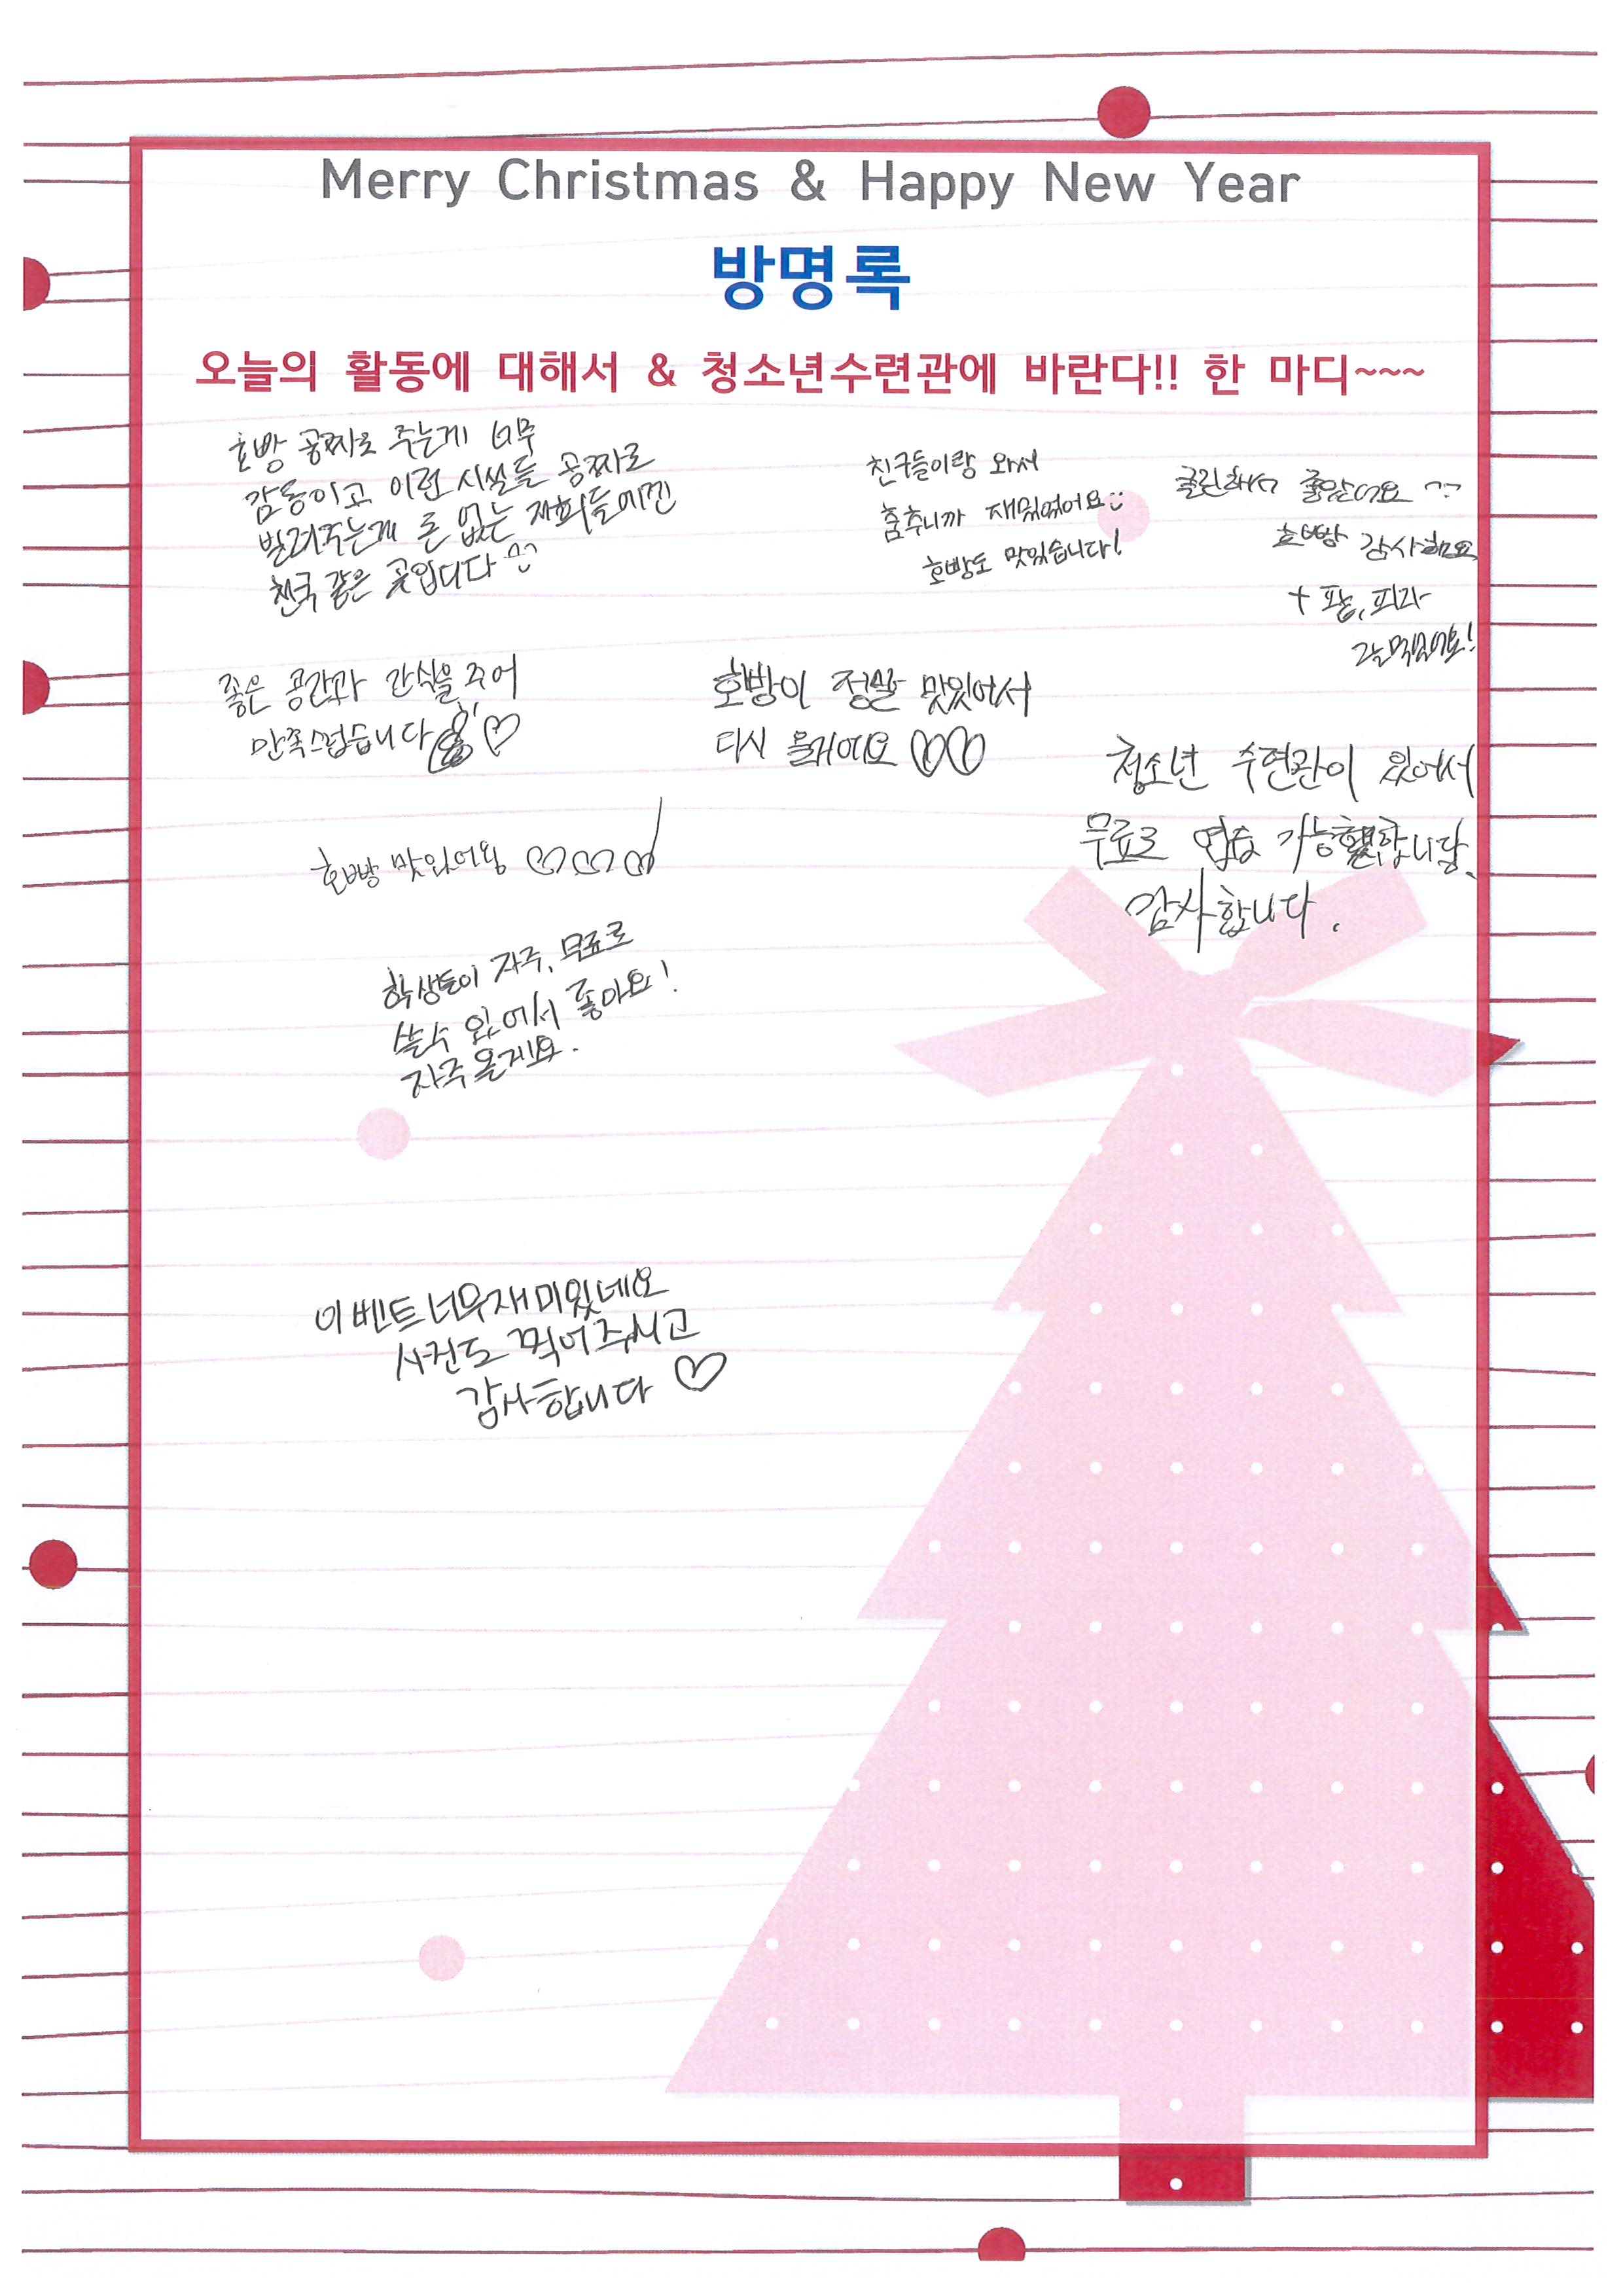 Merry Christmas & Happy New Year
방명록
오늘의 활동에 대해서 & 청소년수련관에 바란다!! 한 마디~~~
호빵 공짜로 주는게 너무
감동이고 이런 시설들 공짜로
빌려주는게 돈 없는 저희들에겐
천국 같은 곳입니다
친구들이랑 와서
춤추니까 재밌었어요
호빵도 맛있습니다!
클린해서 좋았어요
호빵 감사해요
+ 팥, 피자
좋은 공간과 간식을 주어
만족스럽습니다 ♡
호빵이 정말 맛있어서
다시 올거에요 ♡♡
청소년 수련관이 있어서
무료로 연습 가능합니당.
감사합니다.
호빵 맛있어용 ♡♡♡
학생들이 자주, 무료로
쓸수 있어서 좋아요!
자주 올게요.
이벤트 너무 재미있네요
사진도 찍어주시고
감사합니다 ♡